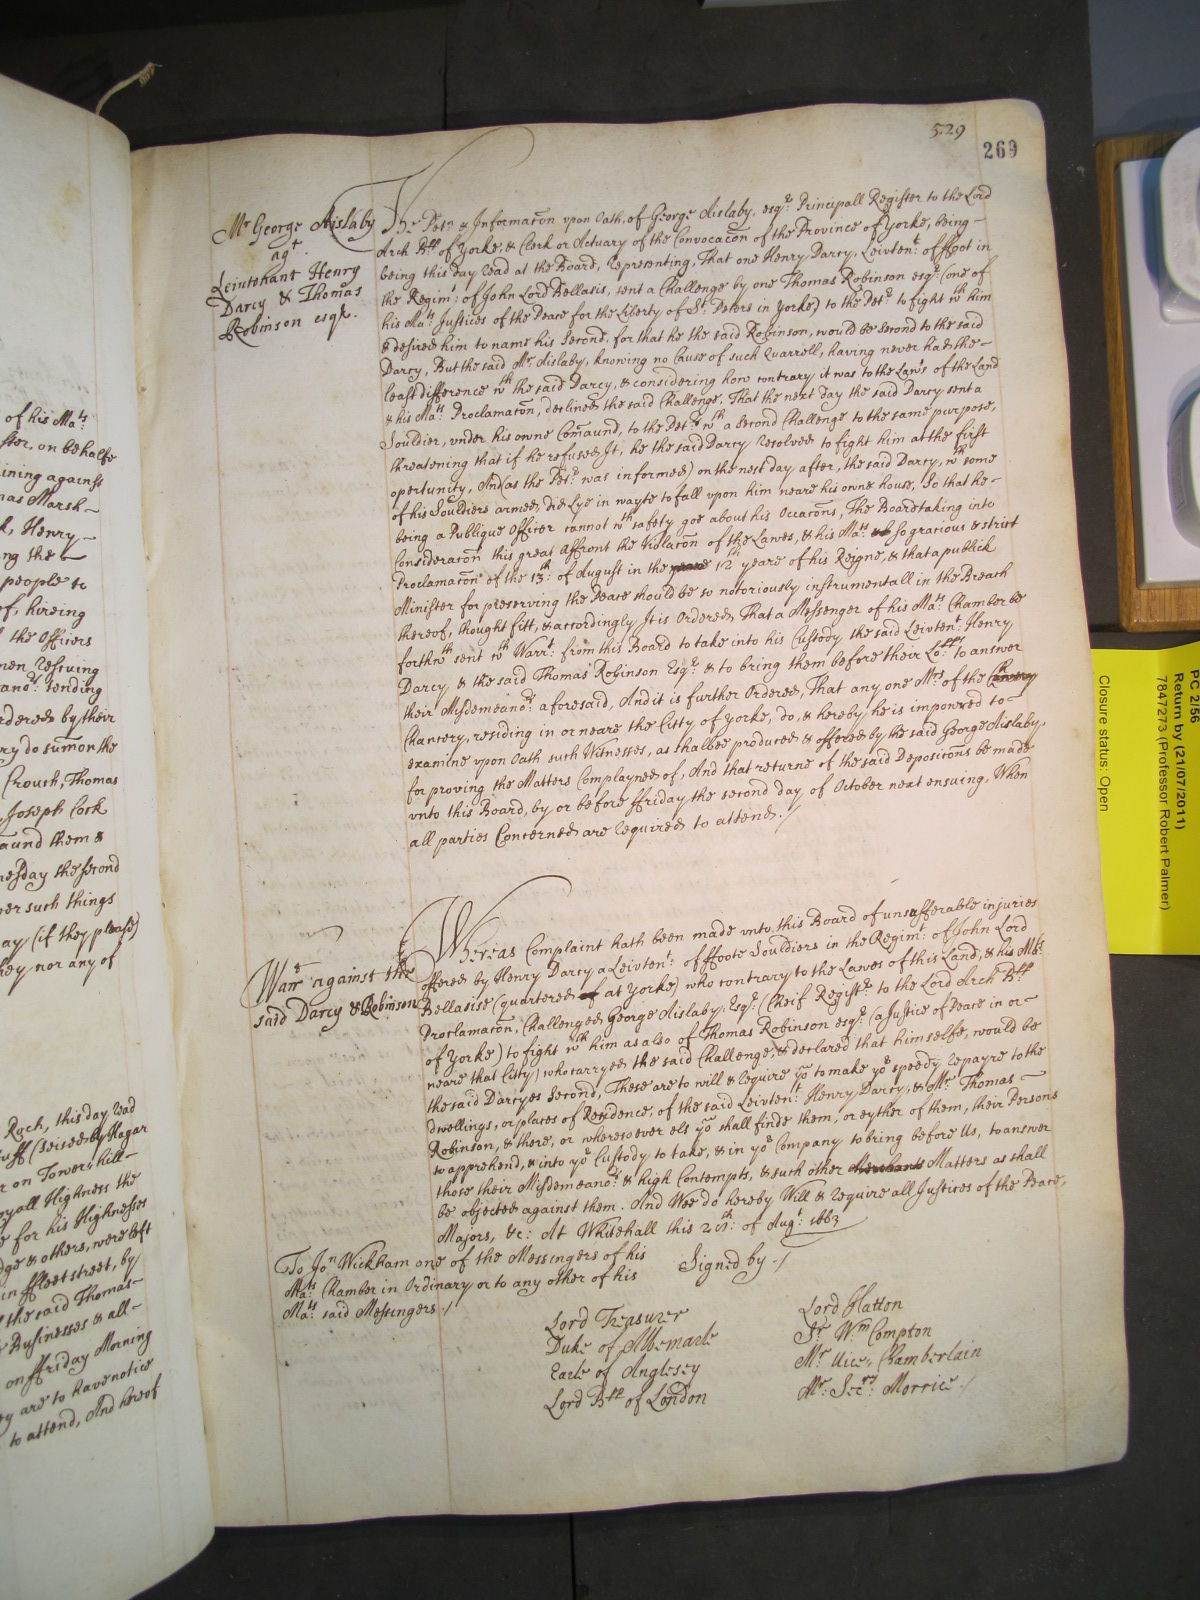 529
269
Mr George Aislaby
agt
Leiutenant Henry
Darcy & Thomas
Robinson esqr.
The Petn: & Informacōn vpon Oath, of George Aislaby, esqr: Principall Register to the Lord
Arch Bpp of Yorke, & Clerk or Actuary of the Convocacōn of the Province of Yorke, being –
being this day read at the Board, representing, That one Henry Darcy, Leivtent: of ffoot in
the Regimt: of John Lord Bellasis, sent a Challenge by one Thomas Robinson esqr: (one of
his Mats: Justices of the Peace for the Liberty of St. Peters in Yorke) to the Petr: to fight wth him
& desired him to name his Second, for that he the said Robinson, would be Second to the said
Darcy, But the said Mr Aislaby, knowing no Cause of such Quarrell, having never had the –
least difference wth the said Darcy, & considering how contrary it was to the Laws of the Land
& his Mats: Proclamacōn, declined the said Challenge, That the next day the said Darcy sent a
Souldier, vnder his owne Com̄aund, to the Petr: wth a Second Challenge to the same purpose,
threatening that if he refused It, he the said Darcy resolved to fight him at the first
opertunity, And (as the Petr: was informed) on the next day after, the said Darcy, wth some
of his Souldiers armed, did Lye in wayte to fall vpon him neare his owne house, So that he –
being a Publique Officer cannot wth safety goe about his Occacōns, The Board taking into
Consideracōn this great Affront the Violacōn of the Lawes, & his Mats: so gracious & strict
Proclamacōn of the 13th: of August in the yeare 12th yeare of his Reigne, & that a publick
Minister for preserving the Peace should be so notoriously instrumentall in the Breach
thereof, thought fitt, & accordingly It is Ordered, That a Messenger of his Mats: Chamber be
forthwth sent wth Warrt: from this Board to take into his Custody the said Leivtent: Henry
Darcy, & the said Thomas Robinson Esqr: & to bring them before their Lopps to answer
their Misdemeanors: aforesaid, And it is further Ordered, That any one Mrs of the
Chancery, residing in or neare the Citty of Yorke, do, & hereby he is impowred to –
examine vpon Oath such Witnesses, as shalbee produced & offered by the said George Aislaby,
for proving the Matters Complayned of, And that returne of the said Deposicōns be made
vnto this Board, by or before ffriday the second day of October next ensuing, When
all parties Concerned are required to attend. /
Warrt against the
said Darcy & Robinson
Whereas Complaint hath been made vnto this Board of unsufferable injuries
offered by Henry Darcy a Leivtent: of ffoote Souldiers in the Regimt: of John Lord
Bellasise (quartered at Yorke) who contrary to the Lawes of this Land, & his Mats:
Proclamacōn, Challenged George Aislaby, Esqr: (Cheif Registr: to the Lord Arch Bpp
of Yorke) to fight wth him as also of Thomas Robinson esqr (a Justice of Peace in or –
neare that Citty) who carryed the said Challenge, & declared that himselfe, would be
the said Darcyes Second, These are to will & require you to make yor speedy repayre to the
dwellings, or places of Residence, of the said Leivtent: Henry Darcy, & Mr Thomas –
Robinson, & there, or wheresoever els you shall finde them, or eyther of them, their Persons
to apprehend, & into yor Custody to take, & in yor Company to bring before Us, to answer
those their Misdemeanors: & high Contempts, & such other Merchants Matters as shall
be objected against them. And Wee do hereby Will & require all Justices of the Peace,
Majors, &c: At Whitehall this 21th: of Augt: 1663
To Jon Wickham one of the Messengers of his
Mats: Chamber in Ordinary or to any other of his
Mats: said Messingers. /
Signed by. /
Lord Treasurer
Duke of Albemarle
Earle of Anglesey
Lord Bpp of London
Lord Hatton
Sr Wm Compton
Mr Vice, Chamberlain
Mr: Secry: Morrice. /
of his Mats:
ster, on behalfe
ining against
mas Marsh –
k, Henry –
ng the –
people to
of, hireing
the Officers
men rescuing
tending
rdered by their
ry do sum̄on the
Crouch, Thomas
Joseph Cock
aund them &
nesday the second
her such things
ay (if they please)
hey nor any of
Rock, this day read
uff (seised by Hagar
r on Tower-hill –
oyall Highness the
e for his Highnesses
dge & others, were left
in ffleetstreet, by
the said Thomas –
Businesses & all –
on ffriday Morning
ey are to have notice
to attend, And hereof
PC 2/56
Return by (21/07/2011)
7847273 (Professor Robert Palmer)
Closure status: Open